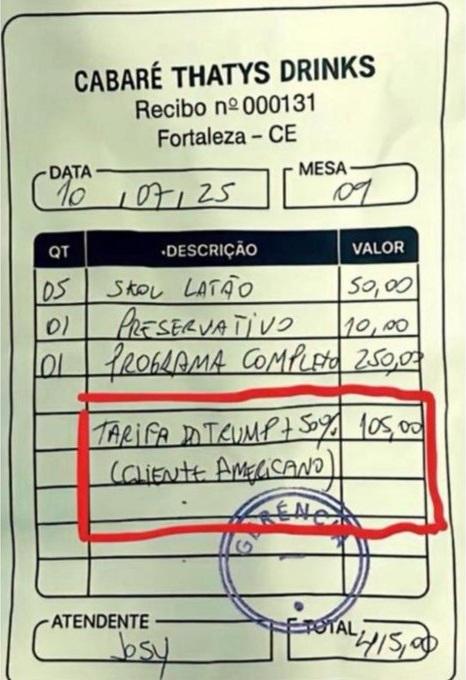 CABARÉ THATYS DRINKS
Recibo nº 000131
Fortaleza – CE
DATA
10 / 07 / 25
MESA
09
QT DESCRIÇÃO VALOR
05 SKOL LATÃO 50,00
01 PRESERVATIVO 10,00
01 PROGRAMA COMPLETO 250,00
TARIFA DO TRUMP + 50% 105,00
(CLIENTE AMERICANO)
GERÊNCIA
ATENDENTE
Josy
TOTAL
415,00